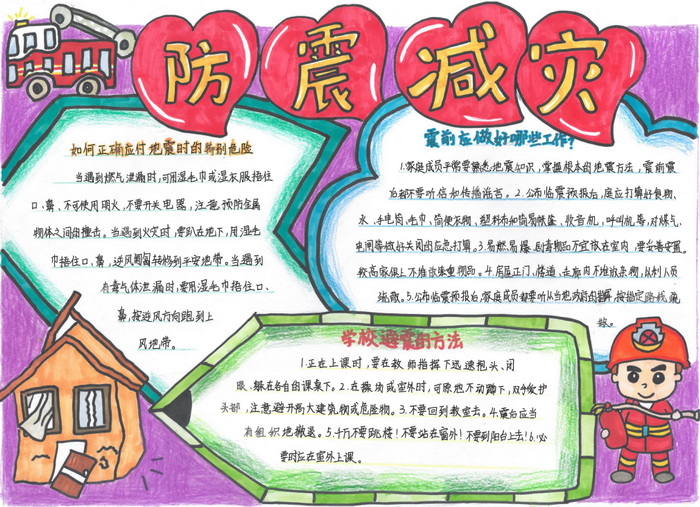 防震减灾
如何正确应付地震时的特别危险
当遇到燃气泄漏时,可用湿毛巾或湿衣服捂住
口、鼻、不可使用明火,不要开关电器,注意预防金属
物体之间的撞击。当遇到火灾时,要趴在地下,用湿毛
巾捂住口、鼻,逆风匍匐转移到平安地带。当遇到
有毒气体泄漏时,要用湿毛巾捂住口、
鼻,按逆风方向跑到上
风地带。
震前应做好哪些工作?
1.家庭成员平常要熟悉地震知识,掌握根本的地震方法,震前震
后都不要听信和传播谣言。2.公布临震预报后,庭应打算好食物、
水、手电筒、毛巾、简便衣物、塑料布和简易帐篷、收音机,呼叫机等,对煤气、
电闸等做好关闭的应急打算。3.易燃易爆、剧毒物品不宜放在室内,要妥善安置。
较高家俱上不堆放珠重物品。4.房屋正门、楼道、走廊内不堆放杂物,从利人员
疏散。5.公布临震预报后,家庭成员都要听从当地政府的指挥,按指定路线疏
散。
学校避震的方法
1.正在上课时,要在教师指挥下迅速抱头、闭
眼、躲在各自的课桌下。2.在操场或室外时,可原地不动蹲下,双手爱护
头部,注意避开高大建筑物或危险物。3.不要回到教室去。4.震后应当
有组织地撤退。5.千万不要跳楼!不要站在窗外!不要到阳台上去!6.必
要时应在室外上课。